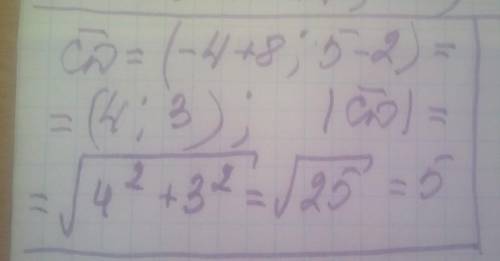 C̅D̅ = (-4+8; 5-2) =
= (4; 3); |C̅D̅| =
= √4² + 3² = √25 = 5